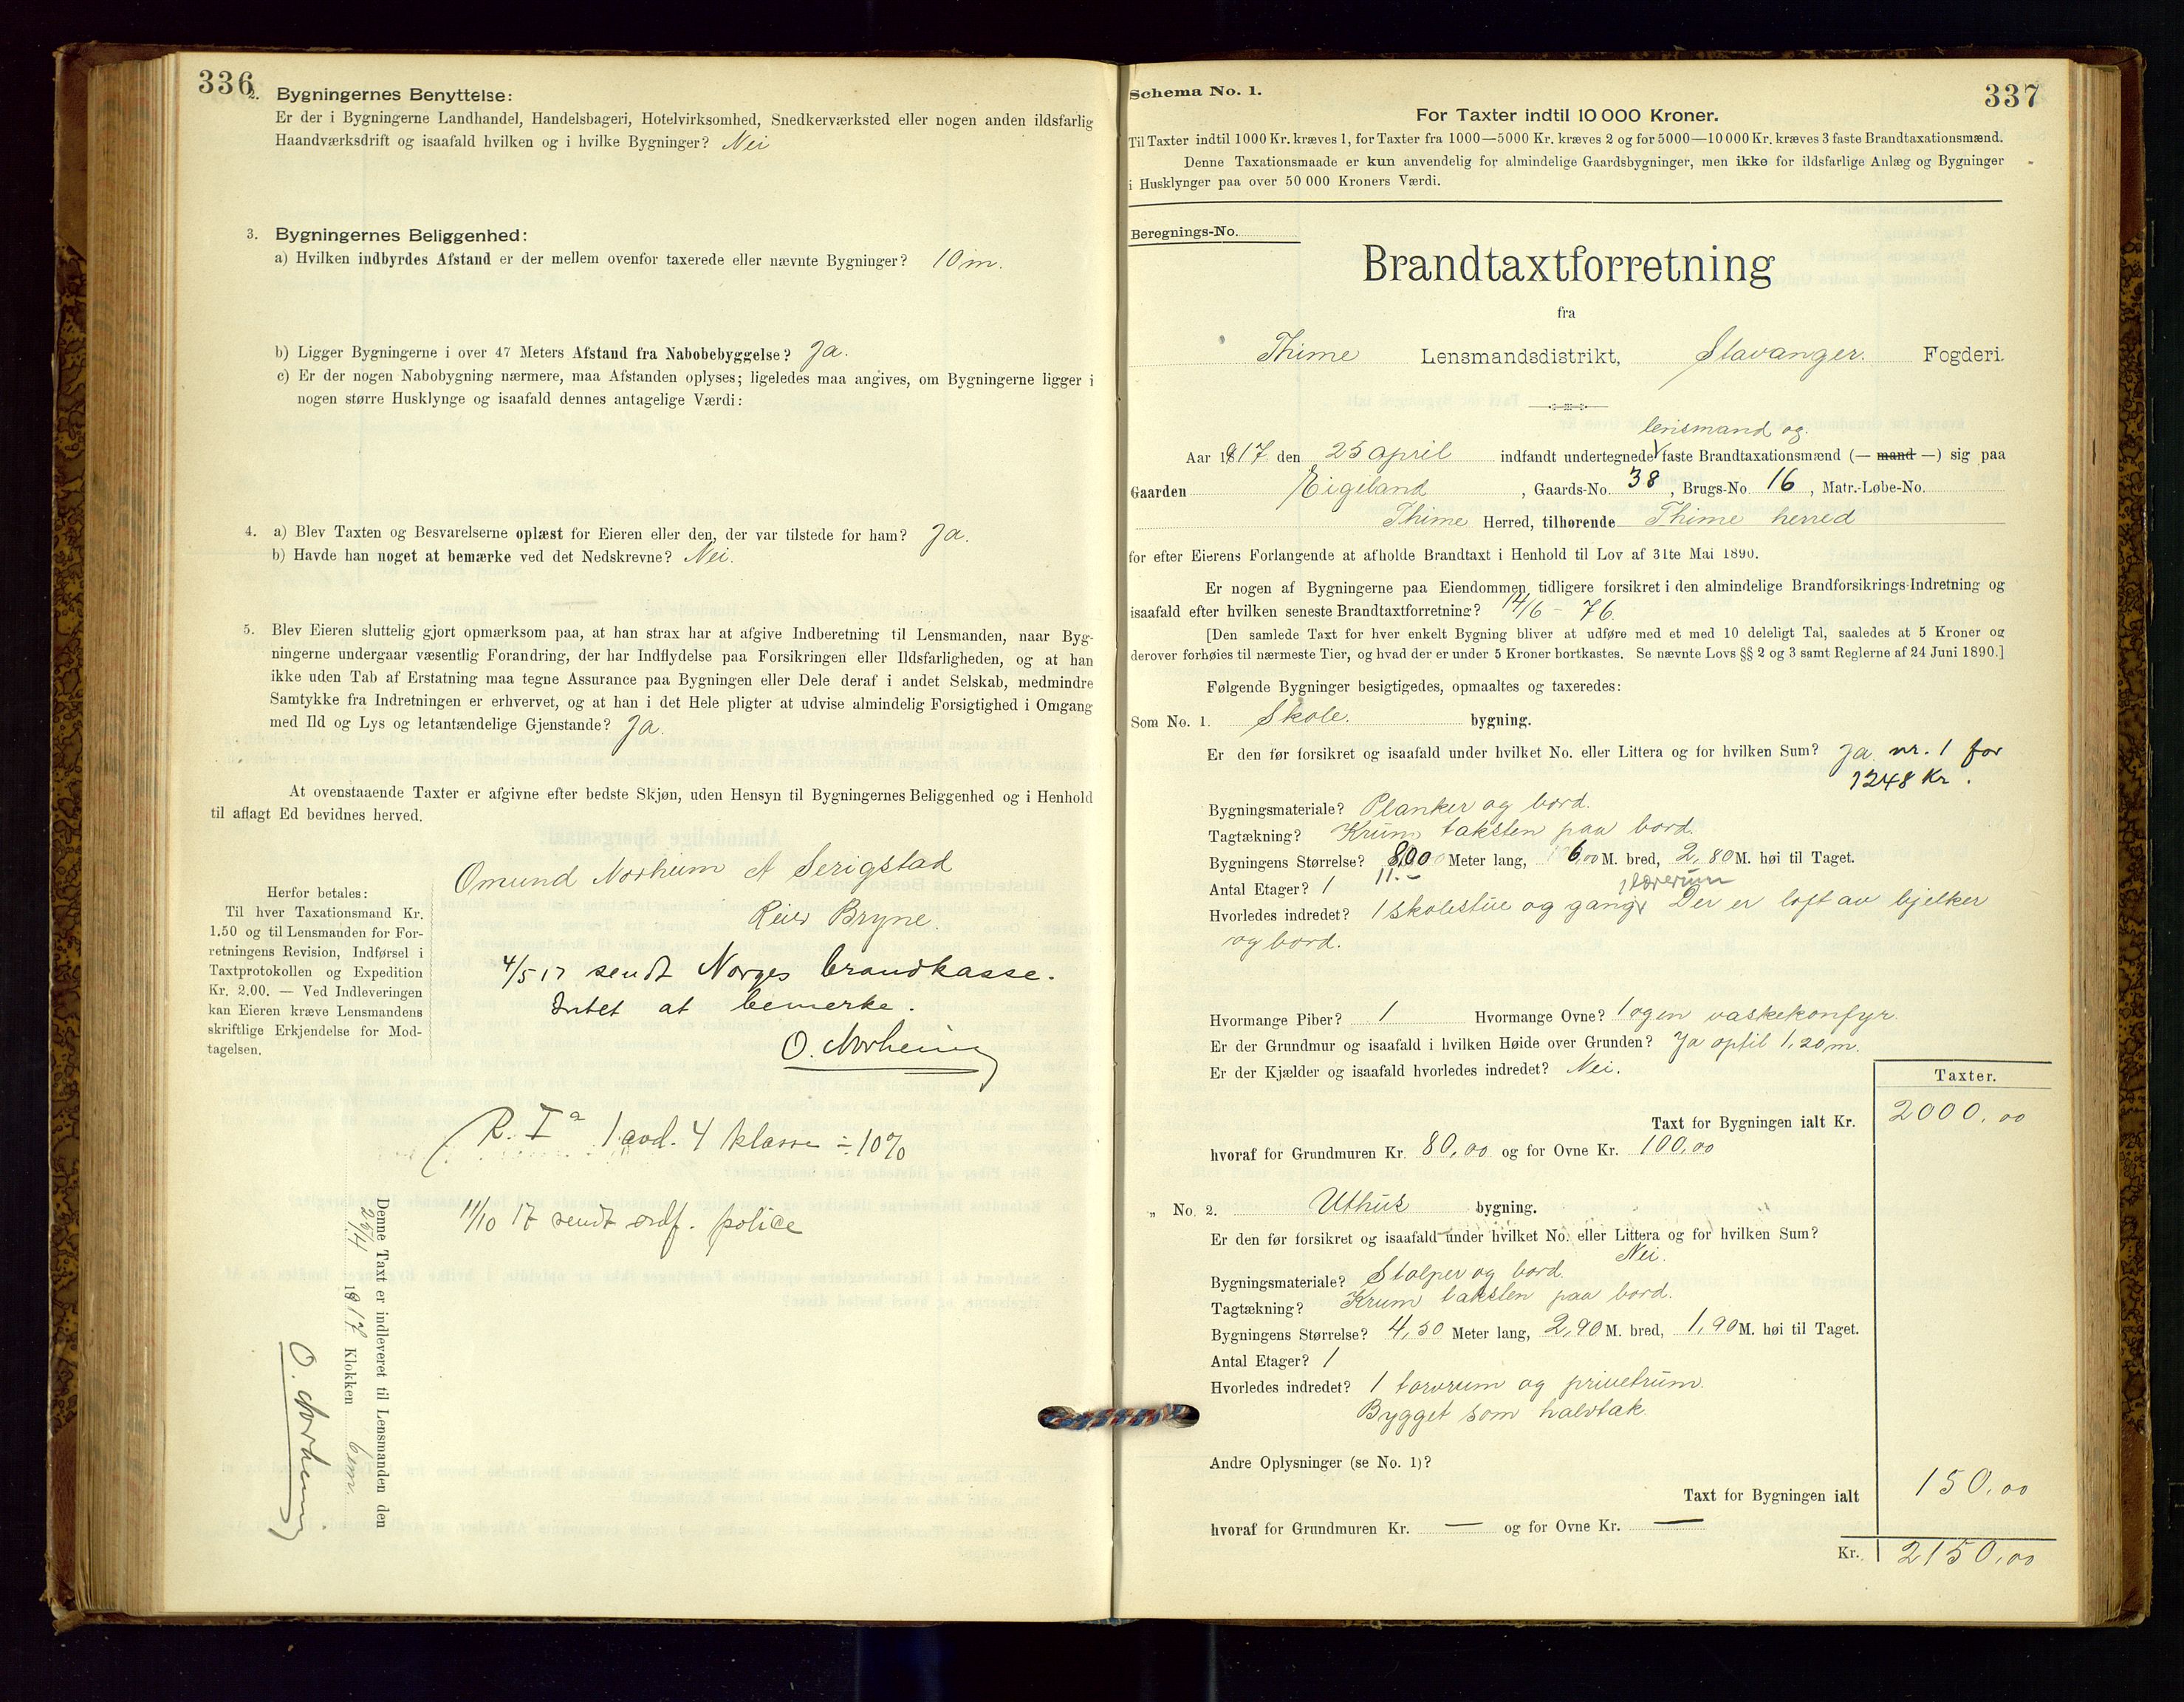 336
2. Bygningernes Benyttelse:
Er der i Bygningerne Landhandel, Handelsbageri, Hotelvirksomhed, Snedkerværksted eller nogen anden ildsfarlig
Haandværksdrift og isaafald hvilken og i hvilke Bygninger? Nei
3. Bygningernes Beliggenhed:
a) Hvilken indbyrdes Afstand er der mellem ovenfor taxerede eller nævnte Bygninger? 10 m.
b) Ligger Bygningerne i over 47 Meters Afstand fra Nabobebyggelse? Ja.
c) Er der nogen Nabobygning nærmere, maa Afstanden oplyses; ligeledes maa angives, om Bygningerne ligger i
nogen større Husklynge og isaafald dennes antagelige Værdi:
4. a) Blev Taxten og Besvarelserne oplæst for Eieren eller den, der var tilstede for ham? Ja.
b) Havde han noget at bemærke ved det Nedskrevne? Nei.
5. Blev Eieren sluttelig gjort opmærksom paa, at han strax har at afgive Indberetning til Lensmanden, naar Byg-
ningerne undergaar væsentlig Forandring, der har Indflydelse paa Forsikringen eller Ildsfarligheden, og at han
ikke uden Tab af Erstatning maa tegne Assurance paa Bygningen eller Dele deraf i andet Selskab, medmindre
Samtykke fra Indretningen er erhvervet, og at han i det Hele pligter at udvise almindelig Forsigtighed i Omgang
med Ild og Lys og letantændelige Gjenstande? Ja.
At ovenstaaende Taxter er afgivne efter bedste Skjøn, uden Hensyn til Bygningernes Beliggenhed og i Henhold
til aflagt Ed bevidnes herved.
Omund Norheim A Serigstad
Reier Bryne.
Herfor betales:
Til hver Taxationsmand Kr.
1.50 og til Lensmanden for For-
retningens Revision, Indførsel i
Taxtprotokollen og Expedition
Kr. 2.00. — Ved Indleveringen
kan Eieren kræve Lensmandens
skriftlige Erkjendelse for Mod-
tagelsen.
4/5 17 sendt Norges brandkasse.
Intet at bemerke.
O. Norheim
R. I a 1 avd. 4 klasse ÷ 10%
11/10 17 sendt ordf. police
Denne Taxt er indleveret til Lensmanden den
1917 Klokken 6 em.
O. Norheim
337
Schema No. 1.
For Taxter indtil 10 000 Kroner.
Til Taxter indtil 1000 Kr. kræves 1, for Taxter fra 1000—5000 Kr. kræves 2 og for 5000—10000 Kr. kræves 3 faste Brandtaxationsmænd.
Denne Taxationsmaade er kun anvendelig for almindelige Gaardsbygninger, men ikke for ildsfarlige Anlæg og Bygninger
i Husklynger paa over 50 000 Kroners Værdi.
Beregnings-No.
Brandtaxtforretning
fra
Thime Lensmandsdistrikt, Stavanger. Fogderi.
lensmand og
Aar 1917 den 25 april indfandt undertegnede faste Brandtaxationsmænd (— mand —) sig paa
Gaarden Eigeland, Gaards-No. 38, Brugs-No. 16, Matr.-Løbe-No.
Thime Herred, tilhørende Thime herred
for efter Eierens Forlangende at afholde Brandtaxt i Henhold til Lov af 31te Mai 1890.
Er nogen af Bygningerne paa Eiendommen tidligere forsikret i den almindelige Brandforsikrings-Indretning og
isaafald efter hvilken seneste Brandtaxtforretning? 14/6 - 76.
[Den samlede Taxt for hver enkelt Bygning bliver at udføre med et med 10 deleligt Tal, saaledes at 5 Kroner og
derover forhøies til nærmeste Tier, og hvad der er under 5 Kroner bortkastes. Se nævnte Lovs §§ 2 og 3 samt Reglerne af 24 Juni 1890.]
Følgende Bygninger besigtigedes, opmaaltes og taxeredes:
Som No. 1. Skole. bygning.
Er den før forsikret og isaafald under hvilket No. eller Littera og for hvilken Sum? Ja nr. 1 for
1248 Kr.
Bygningsmateriale? Planker og bord.
Tagtækning? Krum taksten paa bord.
Bygningens Størrelse? 8,00 Meter lang, 6,00 M. bred, 2,80 M. høi til Taget.
11.-
Antal Etager? 1
1 lærerum
Hvorledes indredet? 1 skolestue og gang. Der er loft av bjelker
og bord.
Hvormange Piber? 1 Hvormange Ovne? 1 og en vaskekomfyr.
Er der Grundmur og isaafald i hvilken Høide over Grunden? Ja optil 1,20 m.
Er der Kjælder og isaafald hvorledes indredet? Nei.
Taxter.
Taxt for Bygningen ialt Kr. 2000,00
hvoraf for Grundmuren Kr. 80,00 og for Ovne Kr. 100,00
„ No. 2. Uthus bygning.
Er den før forsikret og isaafald under hvilket No. eller Littera og for hvilken Sum?
Nei.
Bygningsmateriale? Stolper og bord.
Tagtækning? Krum taksten paa bord.
Bygningens Størrelse? 4,50 Meter lang, 2,90 M. bred, 1,90 M. høi til Taget.
Antal Etager? 1
Hvorledes indredet? 1 torvrum og privetrum.
Bygget som halvtak.
Andre Oplysninger (se No. 1)?
Taxt for Bygningen ialt 150,00
hvoraf for Grundmuren Kr. — og for Ovne Kr. —
Kr. 2150,00